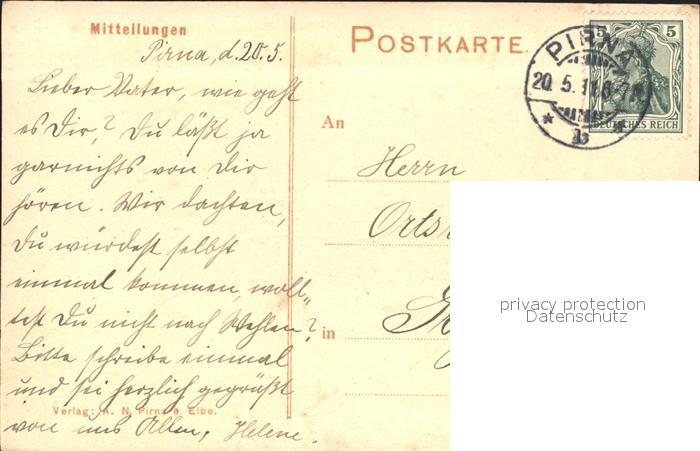 Mitteilungen
Pirna, d. 20.5.
Lieber Vater, wie geht
es Dir? Du läßt ja
garnichts von Dir
hören. Wir dachten,
Du würdest selbst
einmal kommen, woll„
test Du nicht nach Wehlen?
Bitte schreibe einmal
und sei herzlich gegrüßt
von uns Allen, Helene.
Verlag: A. N. Pirna a. Elbe.
POSTKARTE.
PIRNA
20.5.11.
* b
5 5
DEUTSCHES REICH
An
Herrn
in
privacy protection
Datenschutz